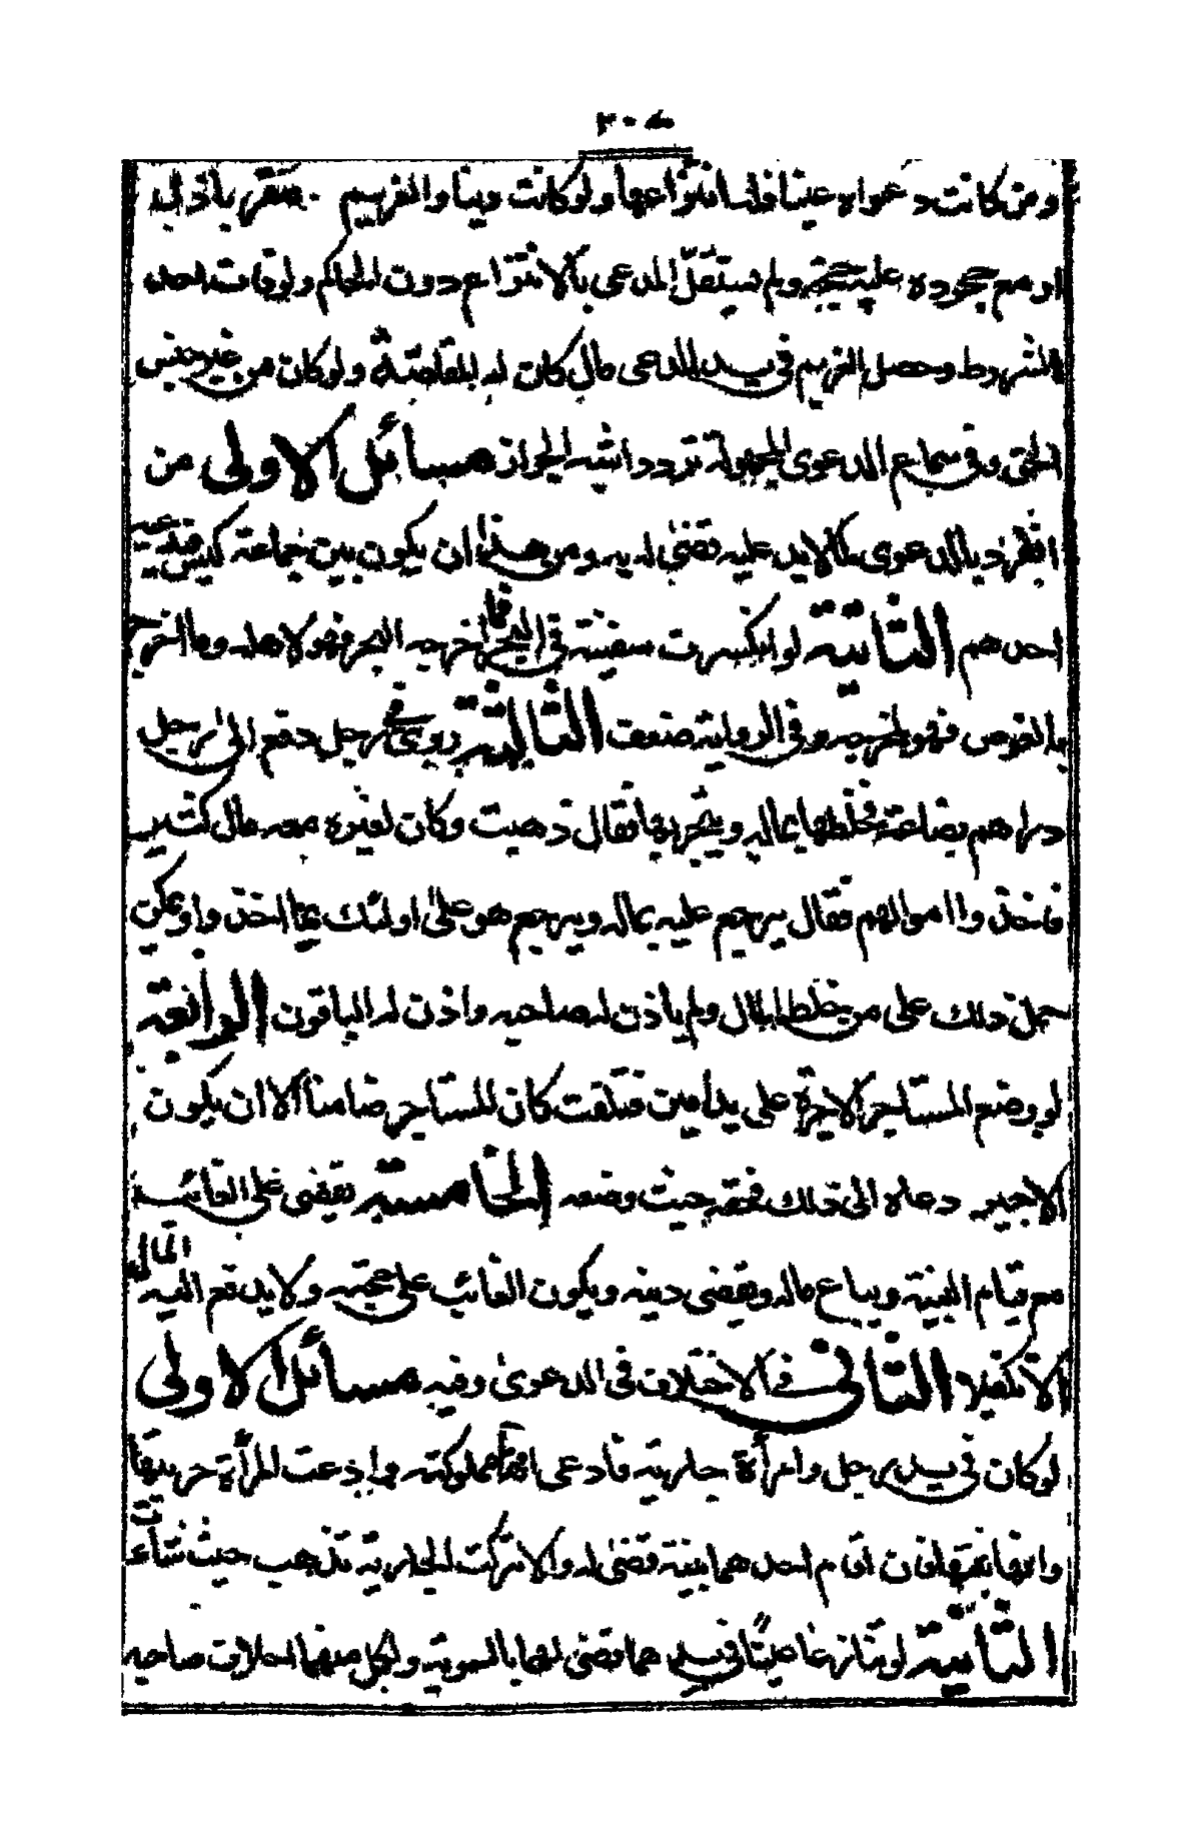 ومن كانت دعواه عينا فله انتزاعها ولو كانت دينا والغريم مقر باذل
او مع جحوده عليه حجة ولم يستقل المدعى بالانتزاع دون الحاكم ولو فات احد
الشروط وحصل للغريم في يد المدعى مال كان له المقاصة ولو كان من غير جنس
الحق وفي سماع الدعوى المجهولة تردد اشبه الجواز مسائل الاولى من
انفرد بالدعوى لما لا يد عليه قضى له به ومن هذا ان يكون بين جماعة كيس فيدعيه
احدهم الثانية لو انكسرت سفينة في البحر فما اخرجه البحر فهو لاهله وما اخرج
بالغوص فهو لمخرجه وفي الرواية ضعف الثالثة روى في رجل دفع الى رجل
دراهم بضاعة فخلطها بماله ويتجر بها فقال ذهبت وكان لغيره معه مال كثير
فاخذوا اموالهم فقال يرجع عليه بماله ويرجع هو على اولئك بما اخذوا ويمكن
حمل ذلك على من خلط المال ولم ياذن له صاحبه واذن له الباقون الرابعة
لو وضع المستاجر الاجرة على يد امين فتلفت كان المستاجر ضامنا الا ان يكون
الاجير دعاه الى ذلك فحقه حيث وضعه الخامسة يقضى على الغائب
مع قيام البينة ويباع ماله ويقضى دينه ويكون الغائب على حجته ولا يدفع اليه المال
الا بكفيلا الثانى في الاختلاف في الدعوى وفيه مسائل الاولى
لو كان في يد رجل وامرأة جارية فادعى انها مملوكته وادعت المرأة حريتها
وانها بنتها فان اقام احدهما بينة قضى له والا تركت الجارية تذهب حيث شاءت
الثانية لو تنازعا عينا في يدهما قضى لهما بالسوية ولكل منهما احلاف صاحبه